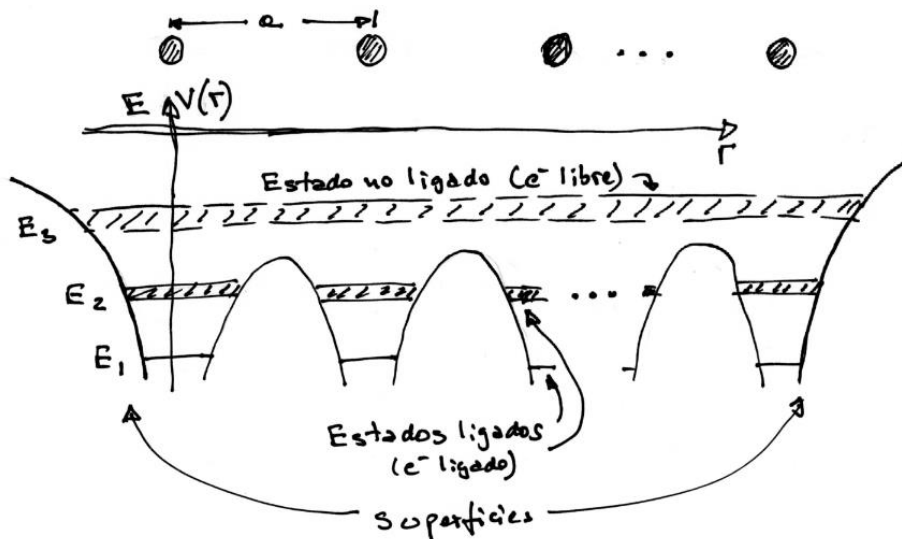 a
...
E V(r)
r
Estado no ligado (e⁻ libre)
E₃
E₂
...
E₁
Estados ligados
(e⁻ ligado)
superficies